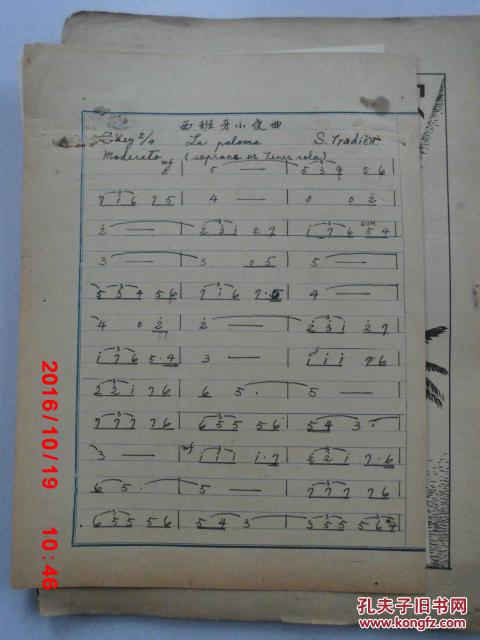 西班牙小夜曲
Key 2/4 La paloma S. Yradier
Moderato (soprano or Tenor solo)
mf 5 | 5 — | 5 3 4 5 6
7 1 6 7 5 | 4 — | 0 0 2
2 — | 2 3 1 2 7 | 1 7 6 5 4
3 — | 3 0 5 | 5 —
5 3 4 5 6 | 7 1 6 7 . 5 | 4 —
4 0 2 | 2 — | 2 3 1 2 7
1 7 6 5 . 4 | 3 — | 1 1 1 7 6
2 2 1 7 6 | 6 5 . | 5 —
7 7 7 7 6 | 6 5 5 5 6 | 5 4 3 .
3 — | mf 1 1 1 1 . 7 | 2 2 1 7 . 6
6 5 . | 5 — | 7 7 7 7 6
6 5 5 5 6 | 5 4 3 | 3 5 5 5 6 #4
2016/10/19 10:46
孔夫子旧书网
www.kongfz.com